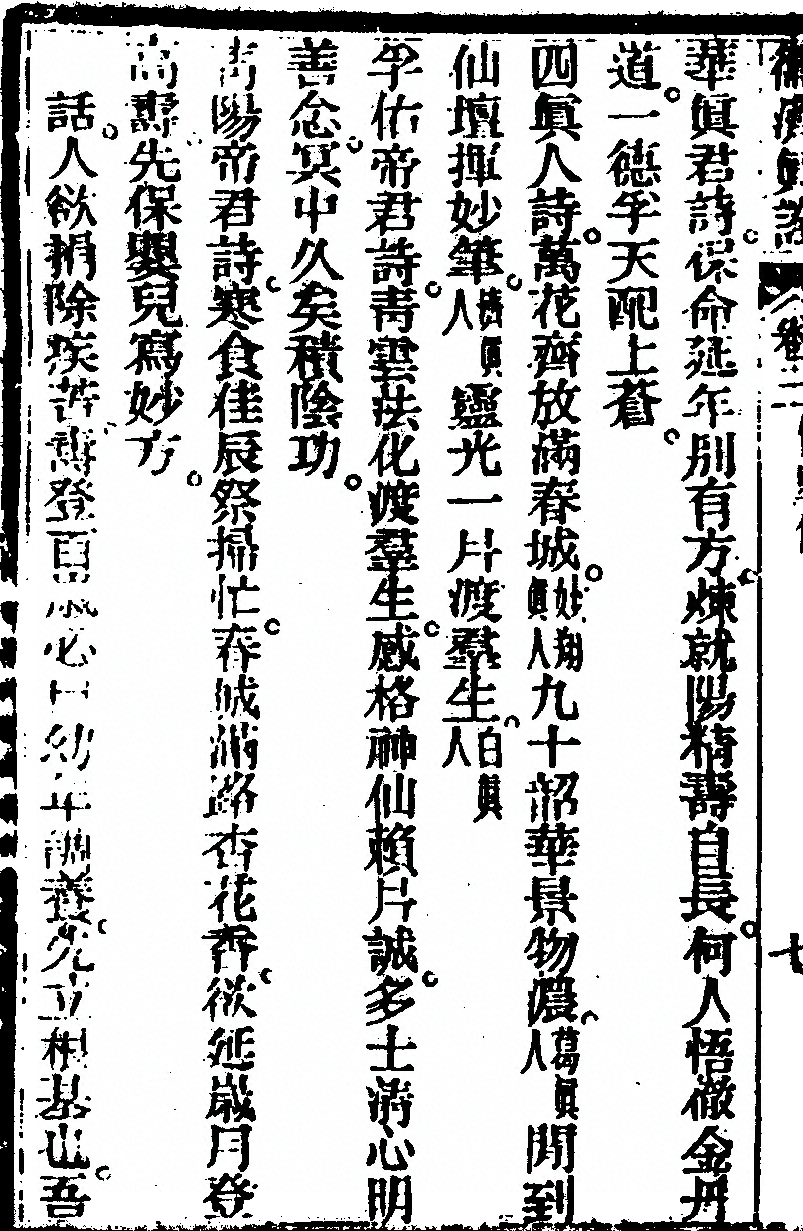 卷二
華眞君詩保命延年別有方煉就陽精壽自長何人悟徹金丹
道一德孚天配上蒼
四眞人詩萬花齊放滿春城妙翔眞人九十韶華景物濃葛眞人閒到
仙壇揮妙筆眞人靈光一片渡羣生白眞人
孚佑帝君詩靑雲法化渡羣生感格神仙賴片誠多士淸心明
善念冥中久矣積陰功
靑陽帝君詩寒食佳辰祭掃忙春城滿路杏花香欲延歲月登
高壽先保嬰兒寫妙方
話人欲捐除疾苦壽登百歲必由幼年調養先立根基也吾